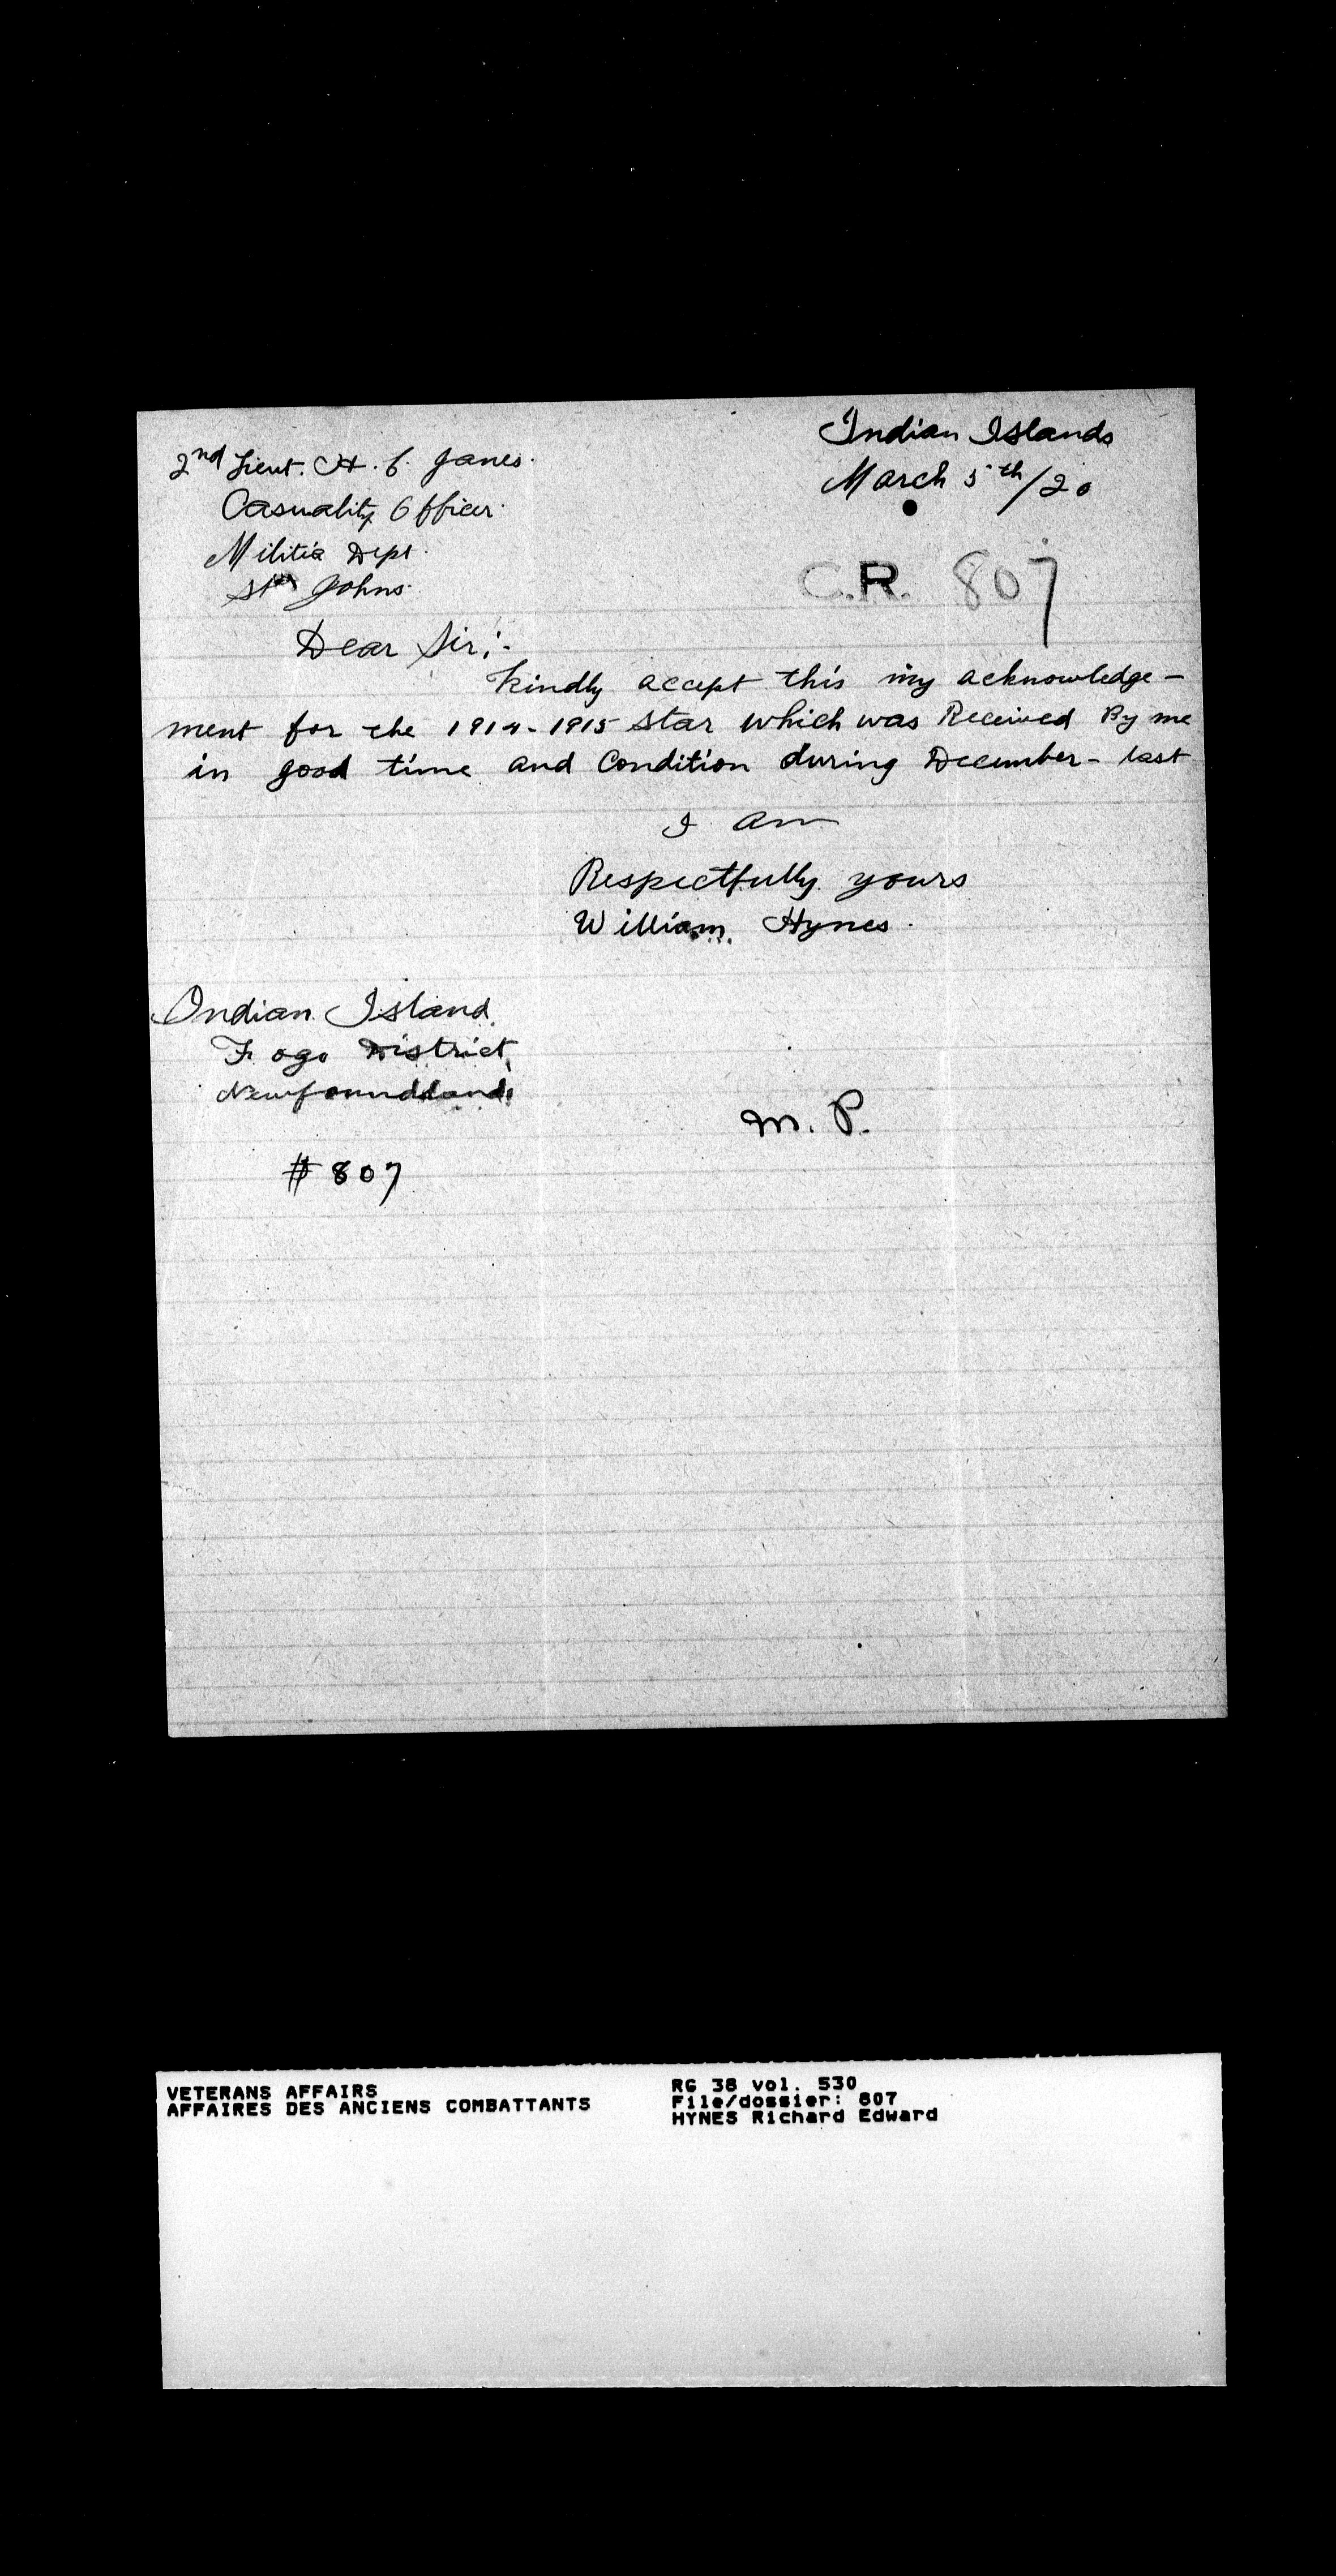 Indian Islands
March 5th/20
2nd Lieut. H. C. Janes.
Casuality Officer.
Militia Dept.
St Johns.
C.R. 807
Dear Sir;-
Kindly accept this my acknowledge-
ment for the 1914-1915 Star which was Received By me
in good time and Condition during December - last
I am
Respectfully yours
William Hynes.
Indian Island
Fogo District
Newfoundland.
M. P.
# 807
VETERANS AFFAIRS
AFFAIRES DES ANCIENS COMBATTANTS
RG 38 vol. 530
File/dossier: 807
HYNES Richard Edward